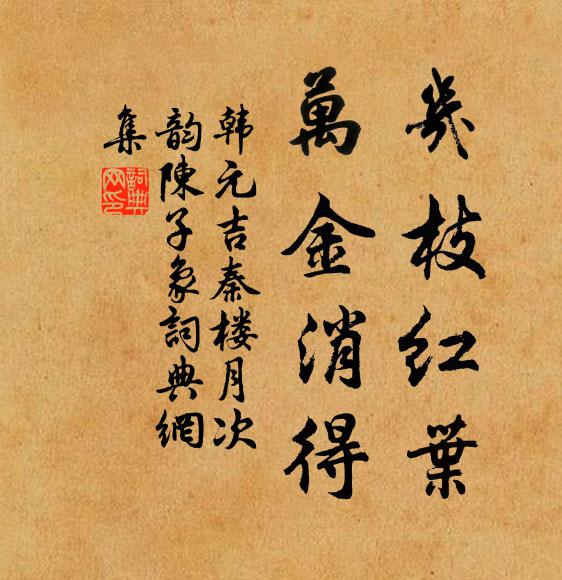 幾枝红葉
萬金消得
韩元吉秦楼月次
韵陳子象詞典網
集
詞典
网印